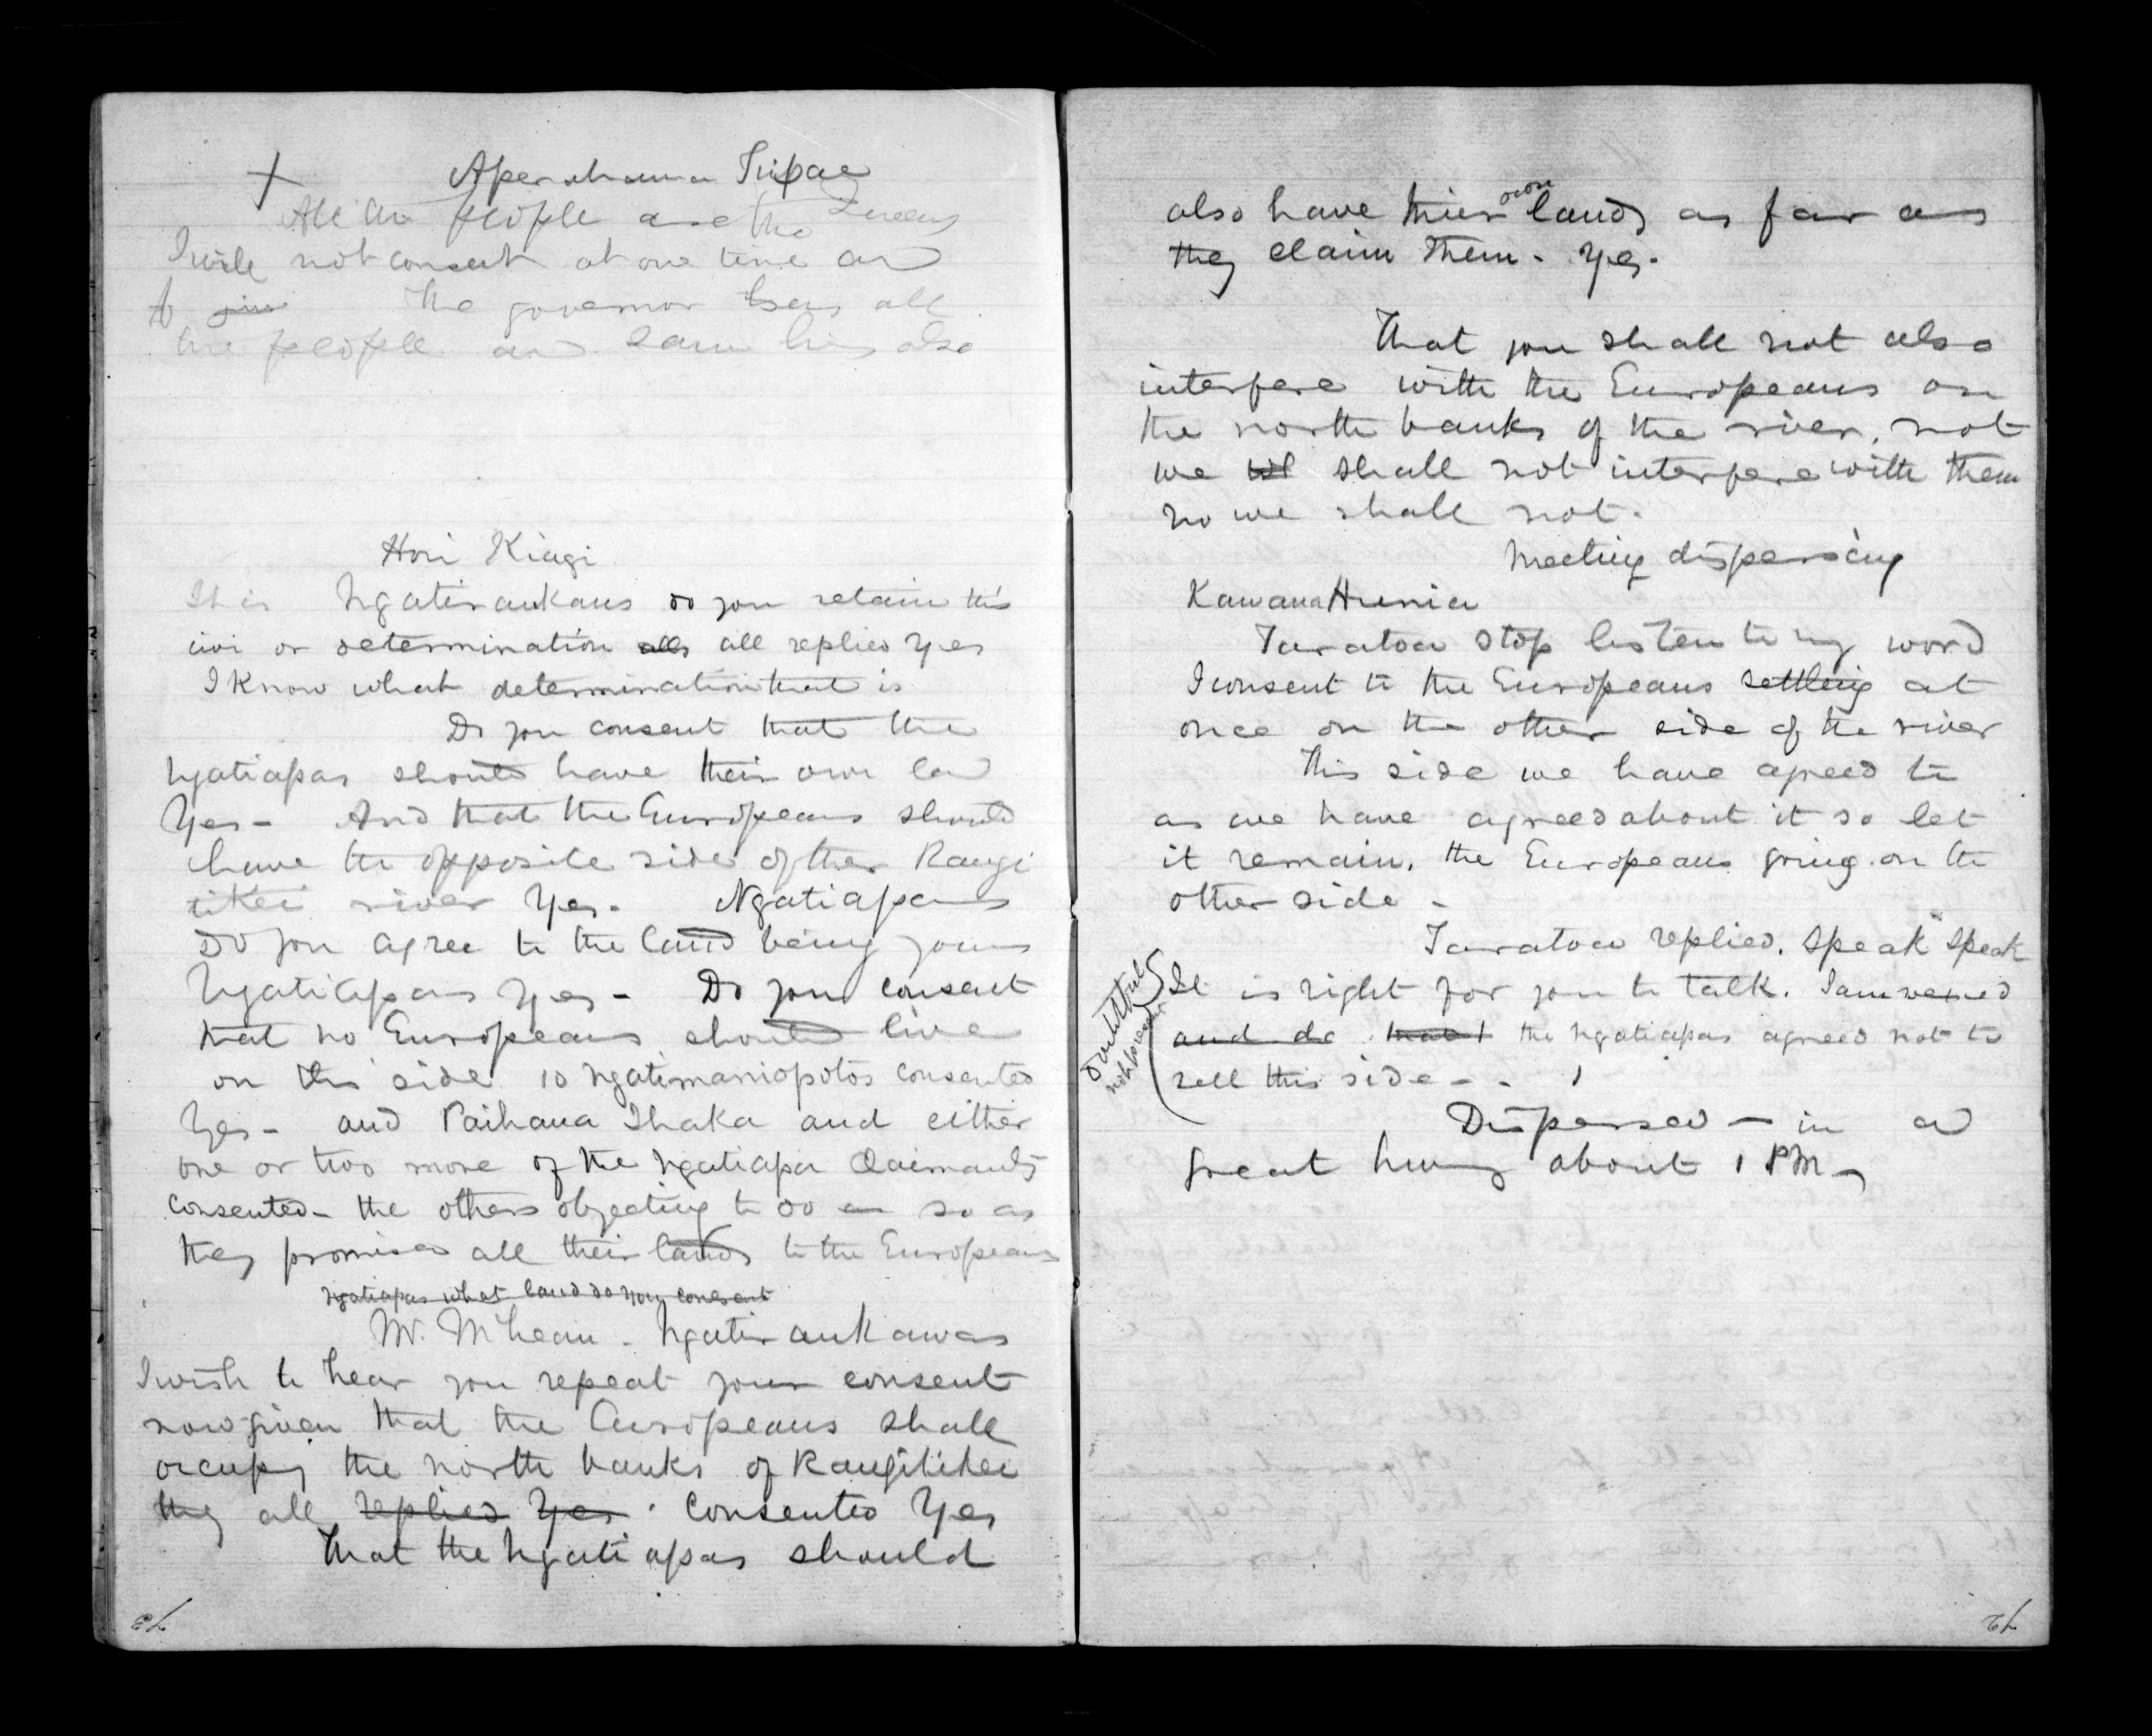 Aperahama Tupae
All the people are the Queens
I will not consent at one time and
to The governor has all
the people and land his also
Hori Kingi
It is Ngatiraukaus do you retain this
iwi or determination alls all replied Yes
I know what determination that is
Do you consent that the
Ngatiapas should have their own land
Yes - And that the Europeans should
have the opposite side of the Rangi
tikei river Yes - Ngatiapas
Do you agree to the land being yours
Ngatiapas Yes - Do you consent
that no Europeans should live
on this side 10 Ngatimaniopotos consented
Yes - and Paihana Ihaka and either
one or two more of the Ngatiapa Claimants
consented - the others objecting to do so as
they promised all their lands to the Europeans
Ngatiapas what land do you consent
Mr. McLean - Ngatiraukawas
I wish to hear you repeat your consent
now given that the Europeans shall
occupy the north banks of Rangitikei
they all replied Yes . Consented Yes
That the Ngatiapas should
73
also have thier own lands as far as
they claim them - Yes -
That you shall not also
interfere with the Europeans on
the north banks of the river, not
we wl shall not interfere with them
no we shall not.
Meeting dispersing
Kawana Hunia
Taratoa stop listen to my word
I consent to the Europeans settling at
once on the other side of the river
This side we have agreed to
as we have agreed about it so let
it remain, the Europeans going on the
other side -
Taratoa replied, speak speak
It is right for you to talk. I am wearied
and do that I the Ngatiapas agreed not to
sell this side - -
doubtful
Dispersed - in a
great hurry about 1 PM -
72